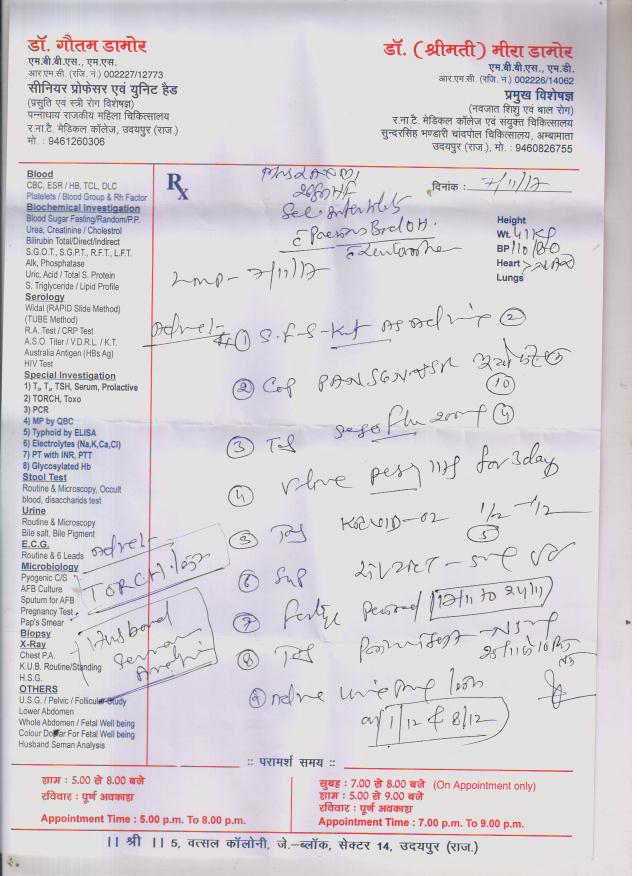 डॉ. गौतम डामोर
एम.बी.बी.एस., एम.एस.
आर.एम.सी. (रजि. नं.) 002227/12773
सीनियर प्रोफेसर एवं युनिट हैड
(प्रसुति एवं स्त्री रोग विशेषज्ञ)
पन्नाधाय राजकीय महिला चिकित्सालय
र.ना.टै. मेडिकल कॉलेज, उदयपुर (राज.)
मो. : 9461260306
डॉ. (श्रीमती) मीरा डामोर
एम.बी.बी.एस., एम.डी.
आर.एम.सी. (रजि. नं.) 002226/14062
प्रमुख विशेषज्ञ
(नवजात शिशु एवं बाल रोग)
र.ना.टै. मेडिकल कॉलेज एवं संयुक्त चिकित्सालय
सुन्दरसिंह भण्डारी चांदपोल चिकित्सालय, अम्बामाता
उदयपुर (राज.), मो. : 9460826755
Blood
CBC, ESR / HB, TCL, DLC
Platelets / Blood Group & Rh Factor
Biochemical Investigation
Blood Sugar Fasting/Random/P.P.
Urea, Creatinine / Cholestrol
Bilirubin Total/Direct/Indirect
S.G.O.T., S.G.P.T., R.F.T., L.F.T.
Alk, Phosphatase
Uric, Acid / Total S. Protein
S. Triglyceride / Lipid Profile
Serology
Widal (RAPID Slide Method)
(TUBE Method)
R.A. Test / CRP Test
A.S.O. Titer / V.D.R.L. / K.T.
Australia Antigen (HBs Ag)
HIV Test
Special Investigation
1) T₃, T₄, TSH, Serum, Prolactive
2) TORCH, Toxo
3) PCR
4) MP by QBC
5) Typhoid by ELISA
6) Electrolytes (Na,K,Ca,Cl)
7) PT with INR, PTT
8) Glycosylated Hb
Stool Test
Routine & Microscopy, Occult
blood, disaccharids test
Urine
Routine & Microscopy
Bile salt, Bile Pigment
E.C.G.
Routine & 6 Leads
Microbiology
Pyogenic C/S
AFB Culture
Sputum for AFB
Pregnancy Test
Pap's Smear
Biopsy
X-Ray
Chest P.A.
K.U.B. Routine/Standing
H.S.G.
OTHERS
U.S.G. / Pelvic / Follicular Study
Lower Abdomen
Whole Abdomen / Fetal Well being
Colour Dopler For Fetal Well being
Husband Seman Analysis
Advice:-
TORCH
Husband
Semen
Rx
दिनांक : 7/11/17
Height
Wt. 41 KG
BP 110/80
Heart
Lungs
LMP - 7/11/17
Advice:-
① S.F.S-Kit ②
② Cap ⑩
③ Tab ④
④ for 3 day
⑤ Tab ⑤
⑥ Syp
⑦ Fertile Period
⑧ Tab
⑨ Advice
1/12 & 8/12
:: परामर्श समय ::
शाम : 5.00 से 8.00 बजे
रविवार : पूर्ण अवकाश
Appointment Time : 5.00 p.m. To 8.00 p.m.
सुबह : 7.00 से 8.00 बजे (On Appointment only)
शाम : 5.00 से 9.00 बजे
रविवार : पूर्ण अवकाश
Appointment Time : 7.00 p.m. To 9.00 p.m.
।। श्री ।। 5, वत्सल कॉलोनी, जे.-ब्लॉक, सेक्टर 14, उदयपुर (राज.)